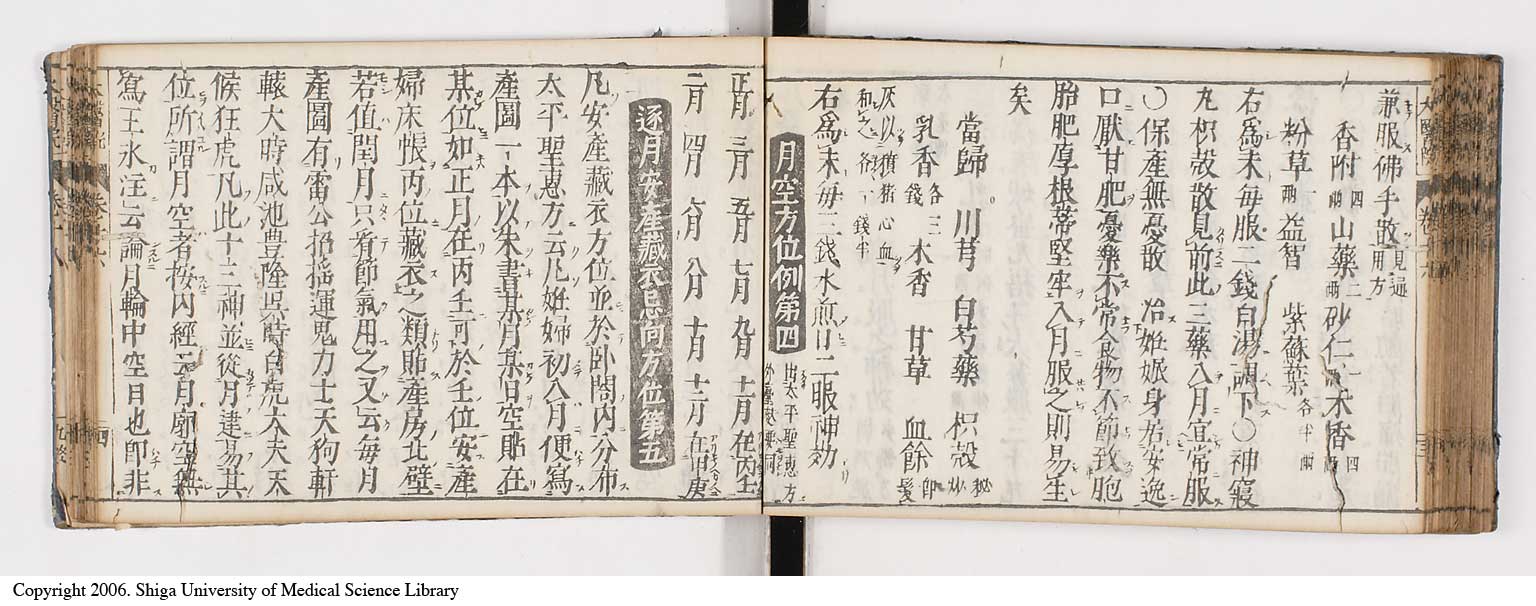 兼服佛手散見過用方
香附四兩山藥二兩砂仁一兩木香四兩
粉草兩益智 紫蘇葉各半兩
右爲末每服二錢白湯調下○神寢
丸枳殼散見前此三藥入月宜常服
○保產無憂散 治妊娠身居安逸
口厭甘肥憂樂不常食物不節致胞
胎肥厚根蒂堅牢入月服之則易生
矣
當歸 川芎 白芍藥 枳殼秘炒
乳香各三錢 木香 甘草 血餘即髮
灰以豶猪心血和之各一錢半
右爲末每二錢水煎日二服神効
月空方位例第四
出太平聖惠方外臺秘要同
正月 三月 五月 七月 九月 十一月在丙壬
二月 四月 六月 八月 十月 十二月在甲庚
逐月安產藏衣忌向方位第五
凡安產藏衣方位並於卧閤內分布
太平聖惠方云凡姙婦初入月便寫
產圖一本以朱書某月某日空貼在
某位如正月在丙壬可於壬位安產
婦床帳丙位藏衣之類貼產房北壁
若值閏月只看節氣用之又云每月
產圖有雷公招搖運鬼力士天狗軒
轅大時咸池豊隆吳時白虎大夫天
候狂虎凡此十三神並從月建易其
位所謂月空者按內經云月廓空無
寫王氷注云論月輪中空日也即非
Copyright 2006. Shiga University of Medical Science Library